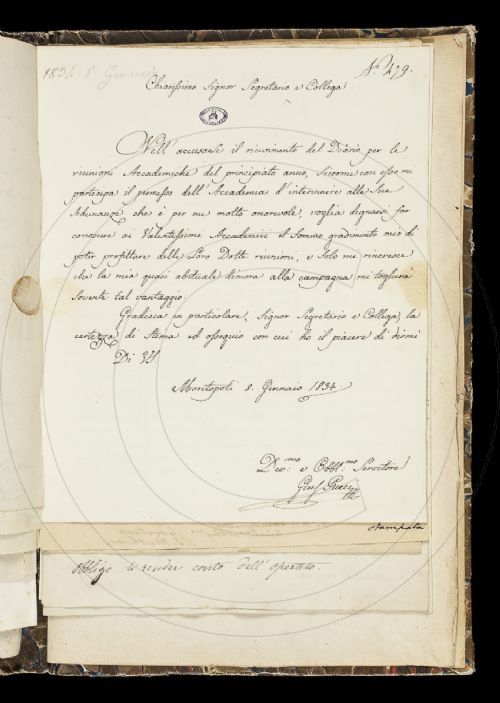 1834. 8. Gennaio
N.º 479.
Chiarissimo Signor Segretario e Collega
Nell'accusarle il ricevimento del Diario per le
riunioni Accademiche del principiato anno, siccome con esso mi
partecipa il permesso dell'Accademia d'intervenire alle Sue
Adunanze che è per me molto onorevole, voglia degnarsi far
conoscere ai Valentissimi Accademici il Sommo gradimento mio di
poter profittare delle Loro Dotte riunioni, e solo mi rincresce
che la mia quasi abituale dimora alla campagna mi toglierà
sovente tal vantaggio
Gradisca in particolare, Signor Segretario e Collega, la
certezza di stima ed ossequio con cui ho il piacere di dirmi
Di VS
Montopoli 8. Gennaio 1834
Dev.mo e Obbl.mo Servitore
stampata
obbligo di render conto dell'operato.